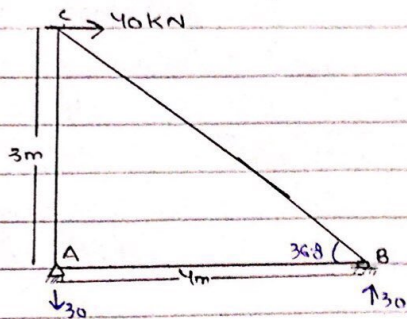 C
40KN
3m
A
36.8
B
4m
↓30
↑30